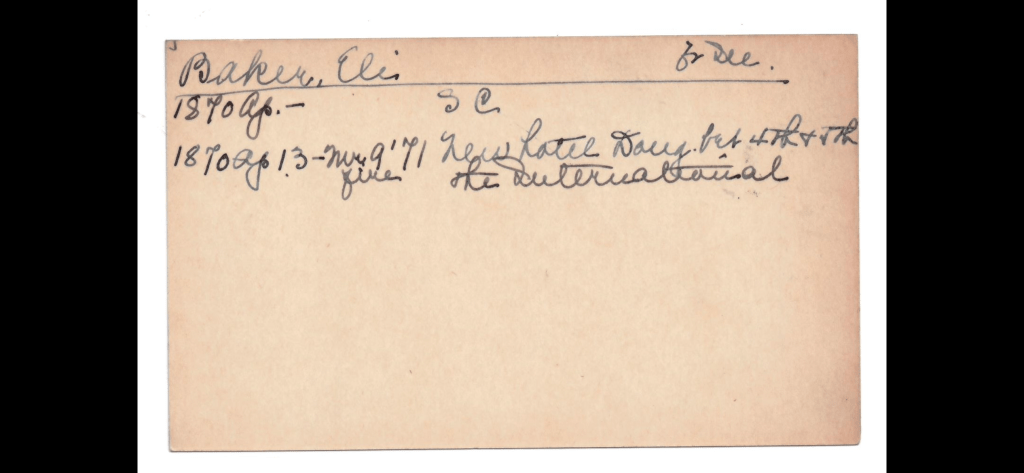 Baker, Eli fr Dec.
1870 Ap. - S C
1870 Ap 13 - Mr 9 '71 New hotel Doug. bet 4th & 5th
fire the International